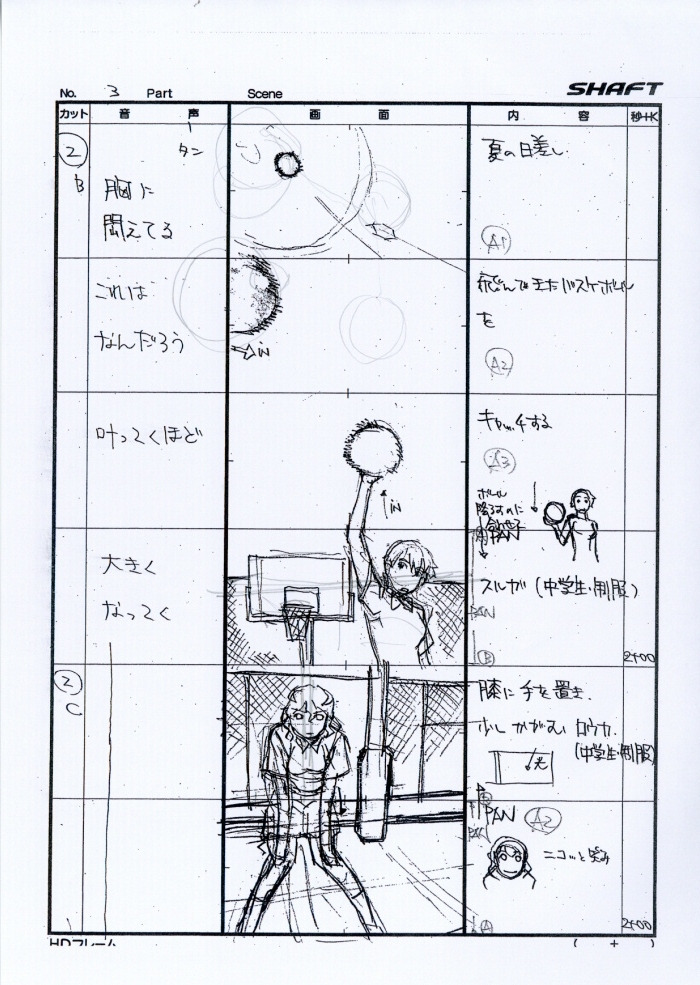 SHAFT
No. 3 Part Scene
カット 音 声 画 面 内 容 秒+K
② B
タン
胸に
夏の日差し
A1
これは
なんだろう
IN
飛んで来たバスケボール
を
A2
叶ってくほど
IN
キャッチする
A3
ボール
PAN
大きく
なってく
スルガ(中学生・制服)
PAN
B
2+00
② C
膝に手を置き、
少しかがむ ロウカ
(中学生・制服)
光
PAN
A2
PAN
ニコッと笑み
A
2+00
HDフレーム
( + )